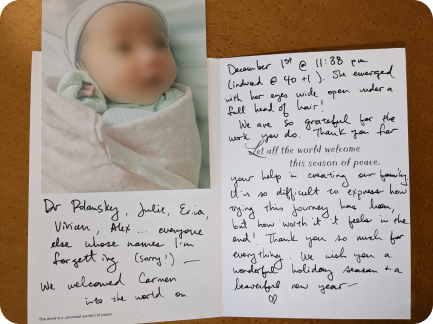 Dr Polansky, Julie, Erica,
Vivian, Alex ... everyone
else whose names I'm
forgetting (sorry!) —
We welcomed Carmen
into the world on
The dove is a universal symbol of peace.
December 1st @ 11:38 pm
(induced @ 40+1). She emerged
with her eyes wide open under a
full head of hair!
We are so grateful for the
work you do. Thank you for
Let all the world welcome
this season of peace.
your help in creating our family.
It's so difficult to express how
trying this journey has been
but how worth it it feels in the
end! Thank you so much for
everything. We wish you a
wonderful holiday season + a
beautiful new year —